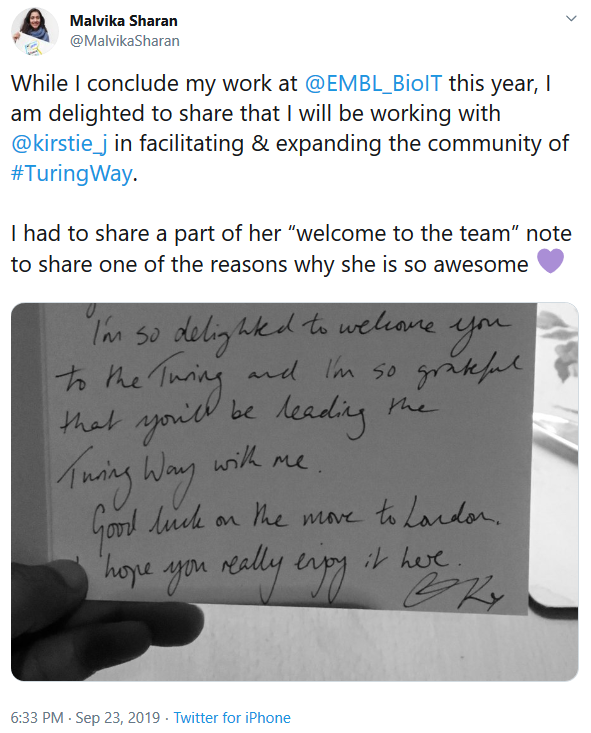 Malvika Sharan
@MalvikaSharan
While I conclude my work at @EMBL_BioIT this year, I
am delighted to share that I will be working with
@kirstie_j in facilitating & expanding the community of
#TuringWay.
I had to share a part of her “welcome to the team” note
to share one of the reasons why she is so awesome 💜
I'm so delighted to welcome you
to the Turing and I'm so grateful
that you'll be leading the
Turing Way with me.
Good luck on the move to London.
I hope you really enjoy it here.
6:33 PM · Sep 23, 2019 · Twitter for iPhone